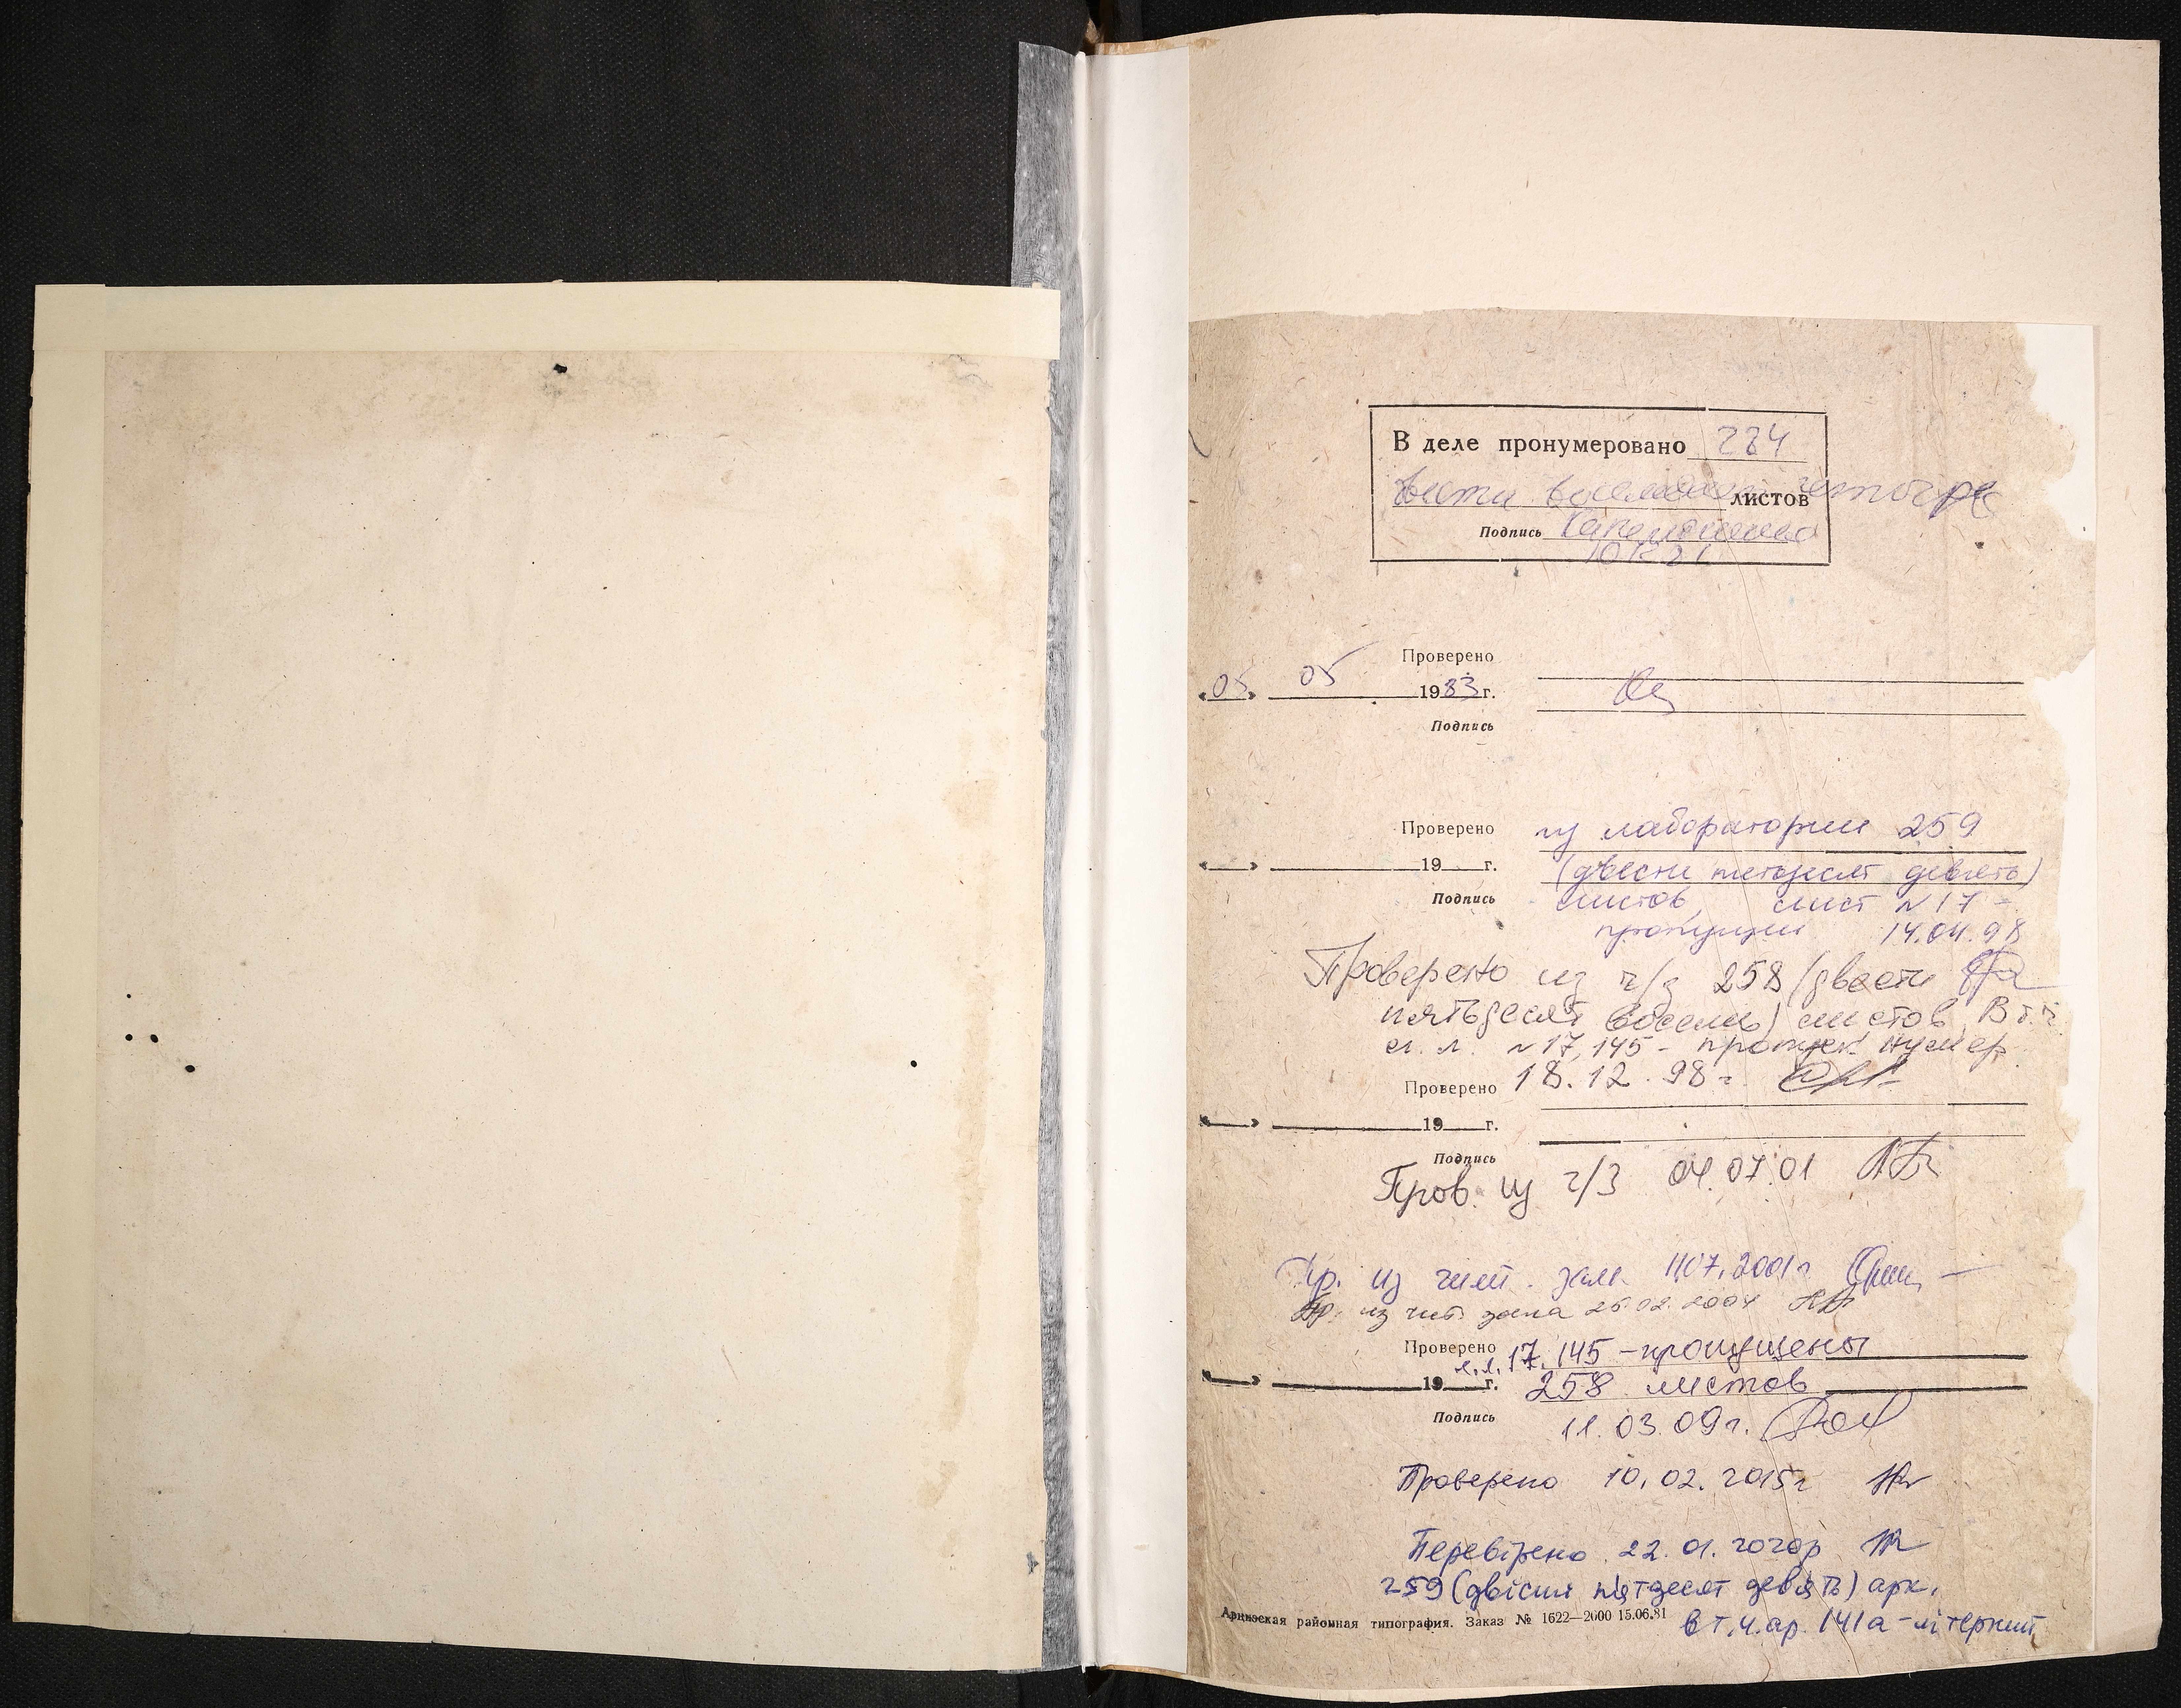 В деле пронумеровано 284
двести восемьдесят четыре
листов
Подпись
Проверено
«05» 05 1983 г.
Подпись
Проверено из лаборатории 259
«__» ____ 19__ г. (двести пятьдесят девять)
Подпись листов, лист №17 -
пропущен 14.04.98
Проверено из ч/з 258 (двести
пятьдесят восемь) листов. В т.ч.
№17, 145 - пропуск нумер.
Проверено 18.12.98 г.
«__» ____ 19__ г.
Подпись
Пров. из ч/з 04.07.01
Пр. из чит. зала 11.07.2001 г
Пр. из чит. зала 26.02.2004
Проверено л.л. 17, 145 - пропущены
«__» ____ 19__ г. 258 листов
Подпись 11.03.09 г.
Проверено 10.02.2015 г
Перевірено 22.01.2020р
259 (двісті п'ятдесят дев'ять) арк.
в т.ч. ар. 141а - літерний
Арцизская районная типография. Заказ № 1622—2000 15.06.81